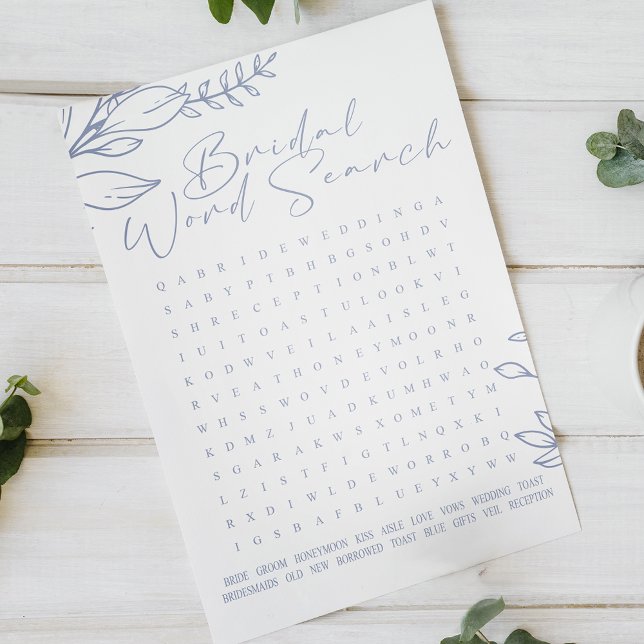 Bridal
Word Search
Q A B R I D E W E D D I N G A
S A B Y P T B H B G S O H D V
S H R E C E P T I O N B L W T
I U I T O A S T U L O O K V I
K O D W V E I L A A I S L E G
R V E A T H O N E Y M O O N R
W H S S W O V D E V O L R H O
K D M Z J U A D K U M H W A O
S G A R A K W S X O M E T Y M
L Z I S T F I G T L N Q X K I
R X D I W L D E W O R R O B Q
I G S B A F B L U E Y X Y W W
BRIDE GROOM HONEYMOON KISS AISLE LOVE VOWS WEDDING TOAST
BRIDESMAIDS OLD NEW BORROWED TOAST BLUE GIFTS VEIL RECEPTION